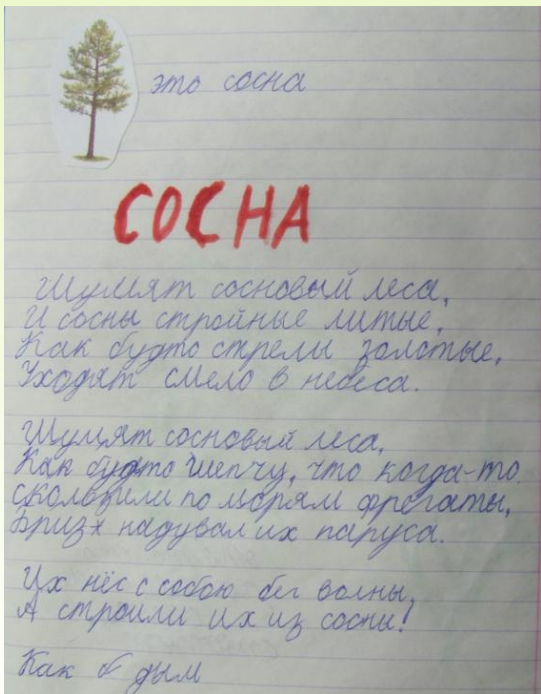 это сосна
СОСНА
Шумят сосновый леса,
И сосны стройные литые,
Как будто стрелы золотые,
Уходят смело в небеса.
Шумят сосновый леса,
Как будто шепчу, что когда-то
скользили по морям фрегаты,
Бриз надувал их паруса.
Их нёс с собою бег волны,
А строили их из сосны!
Как дым